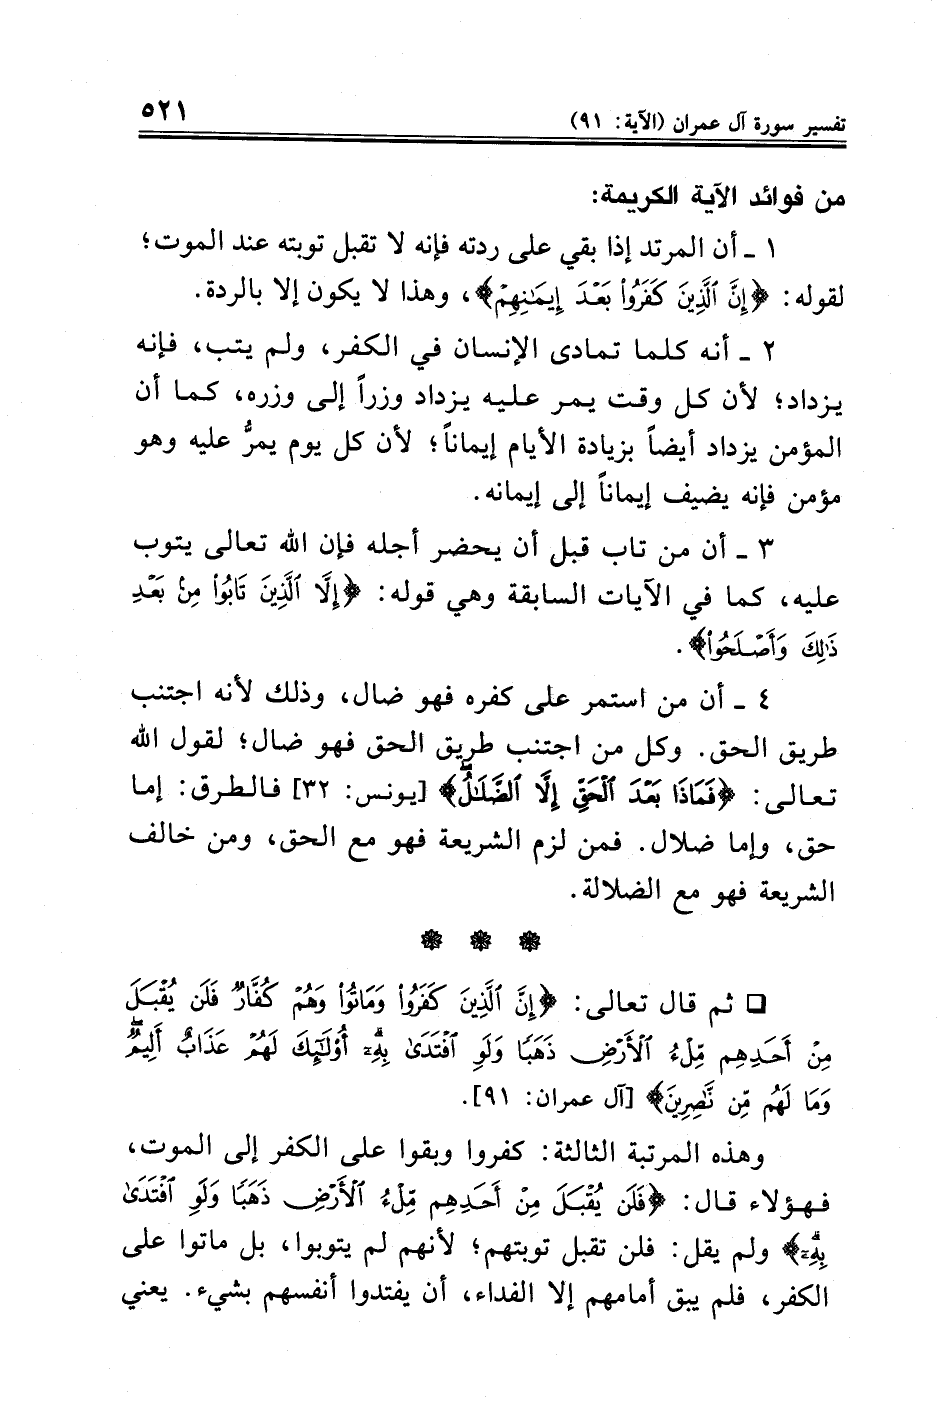 تفسير سورة آل عمران (الآية: ٩١)
٥٢١
من فوائد الآية الكريمة:
١ ـ أن المرتد إذا بقي على ردته فإنه لا تقبل توبته عند الموت؛
لقوله: ﴿إِنَّ ٱلَّذِينَ كَفَرُوا۟ بَعْدَ إِيمَـٰنِهِمْ﴾، وهذا لا يكون إلا بالردة.
٢ ـ أنه كلما تمادى الإنسان في الكفر، ولم يتب، فإنه
يزداد؛ لأن كل وقت يمر عليه يزداد وزراً إلى وزره، كما أن
المؤمن يزداد أيضاً بزيادة الأيام إيماناً؛ لأن كل يوم يمرُّ عليه وهو
مؤمن فإنه يضيف إيماناً إلى إيمانه.
٣ ـ أن من تاب قبل أن يحضر أجله فإن الله تعالى يتوب
عليه، كما في الآيات السابقة وهي قوله: ﴿إِلَّا ٱلَّذِينَ تَابُوا۟ مِنۢ بَعْدِ
ذَٰلِكَ وَأَصْلَحُوا۟﴾.
٤ ـ أن من استمر على كفره فهو ضال، وذلك لأنه اجتنب
طريق الحق. وكل من اجتنب طريق الحق فهو ضال؛ لقول الله
تعالى: ﴿فَمَاذَا بَعْدَ ٱلْحَقِّ إِلَّا ٱلضَّلَـٰلُۖ﴾ [يونس: ٣٢] فالطرق: إما
حق، وإما ضلال. فمن لزم الشريعة فهو مع الحق، ومن خالف
الشريعة فهو مع الضلالة.
❋ ❋ ❋
❏ ثم قال تعالى: ﴿إِنَّ ٱلَّذِينَ كَفَرُوا۟ وَمَاتُوا۟ وَهُمْ كُفَّارٌ فَلَن يُقْبَلَ
مِنْ أَحَدِهِم مِّلْءُ ٱلْأَرْضِ ذَهَبًا وَلَوِ ٱفْتَدَىٰ بِهِۦٓۗ أُو۟لَـٰٓئِكَ لَهُمْ عَذَابٌ أَلِيمٌۖ
وَمَا لَهُم مِّن نَّـٰصِرِينَ﴾ [آل عمران: ٩١].
وهذه المرتبة الثالثة: كفروا وبقوا على الكفر إلى الموت،
فهؤلاء قال: ﴿فَلَن يُقْبَلَ مِنْ أَحَدِهِم مِّلْءُ ٱلْأَرْضِ ذَهَبًا وَلَوِ ٱفْتَدَىٰ
بِهِۦٓۗ﴾ ولم يقل: فلن تقبل توبتهم؛ لأنهم لم يتوبوا، بل ماتوا على
الكفر، فلم يبق أمامهم إلا الفداء، أن يفتدوا أنفسهم بشيء. يعني